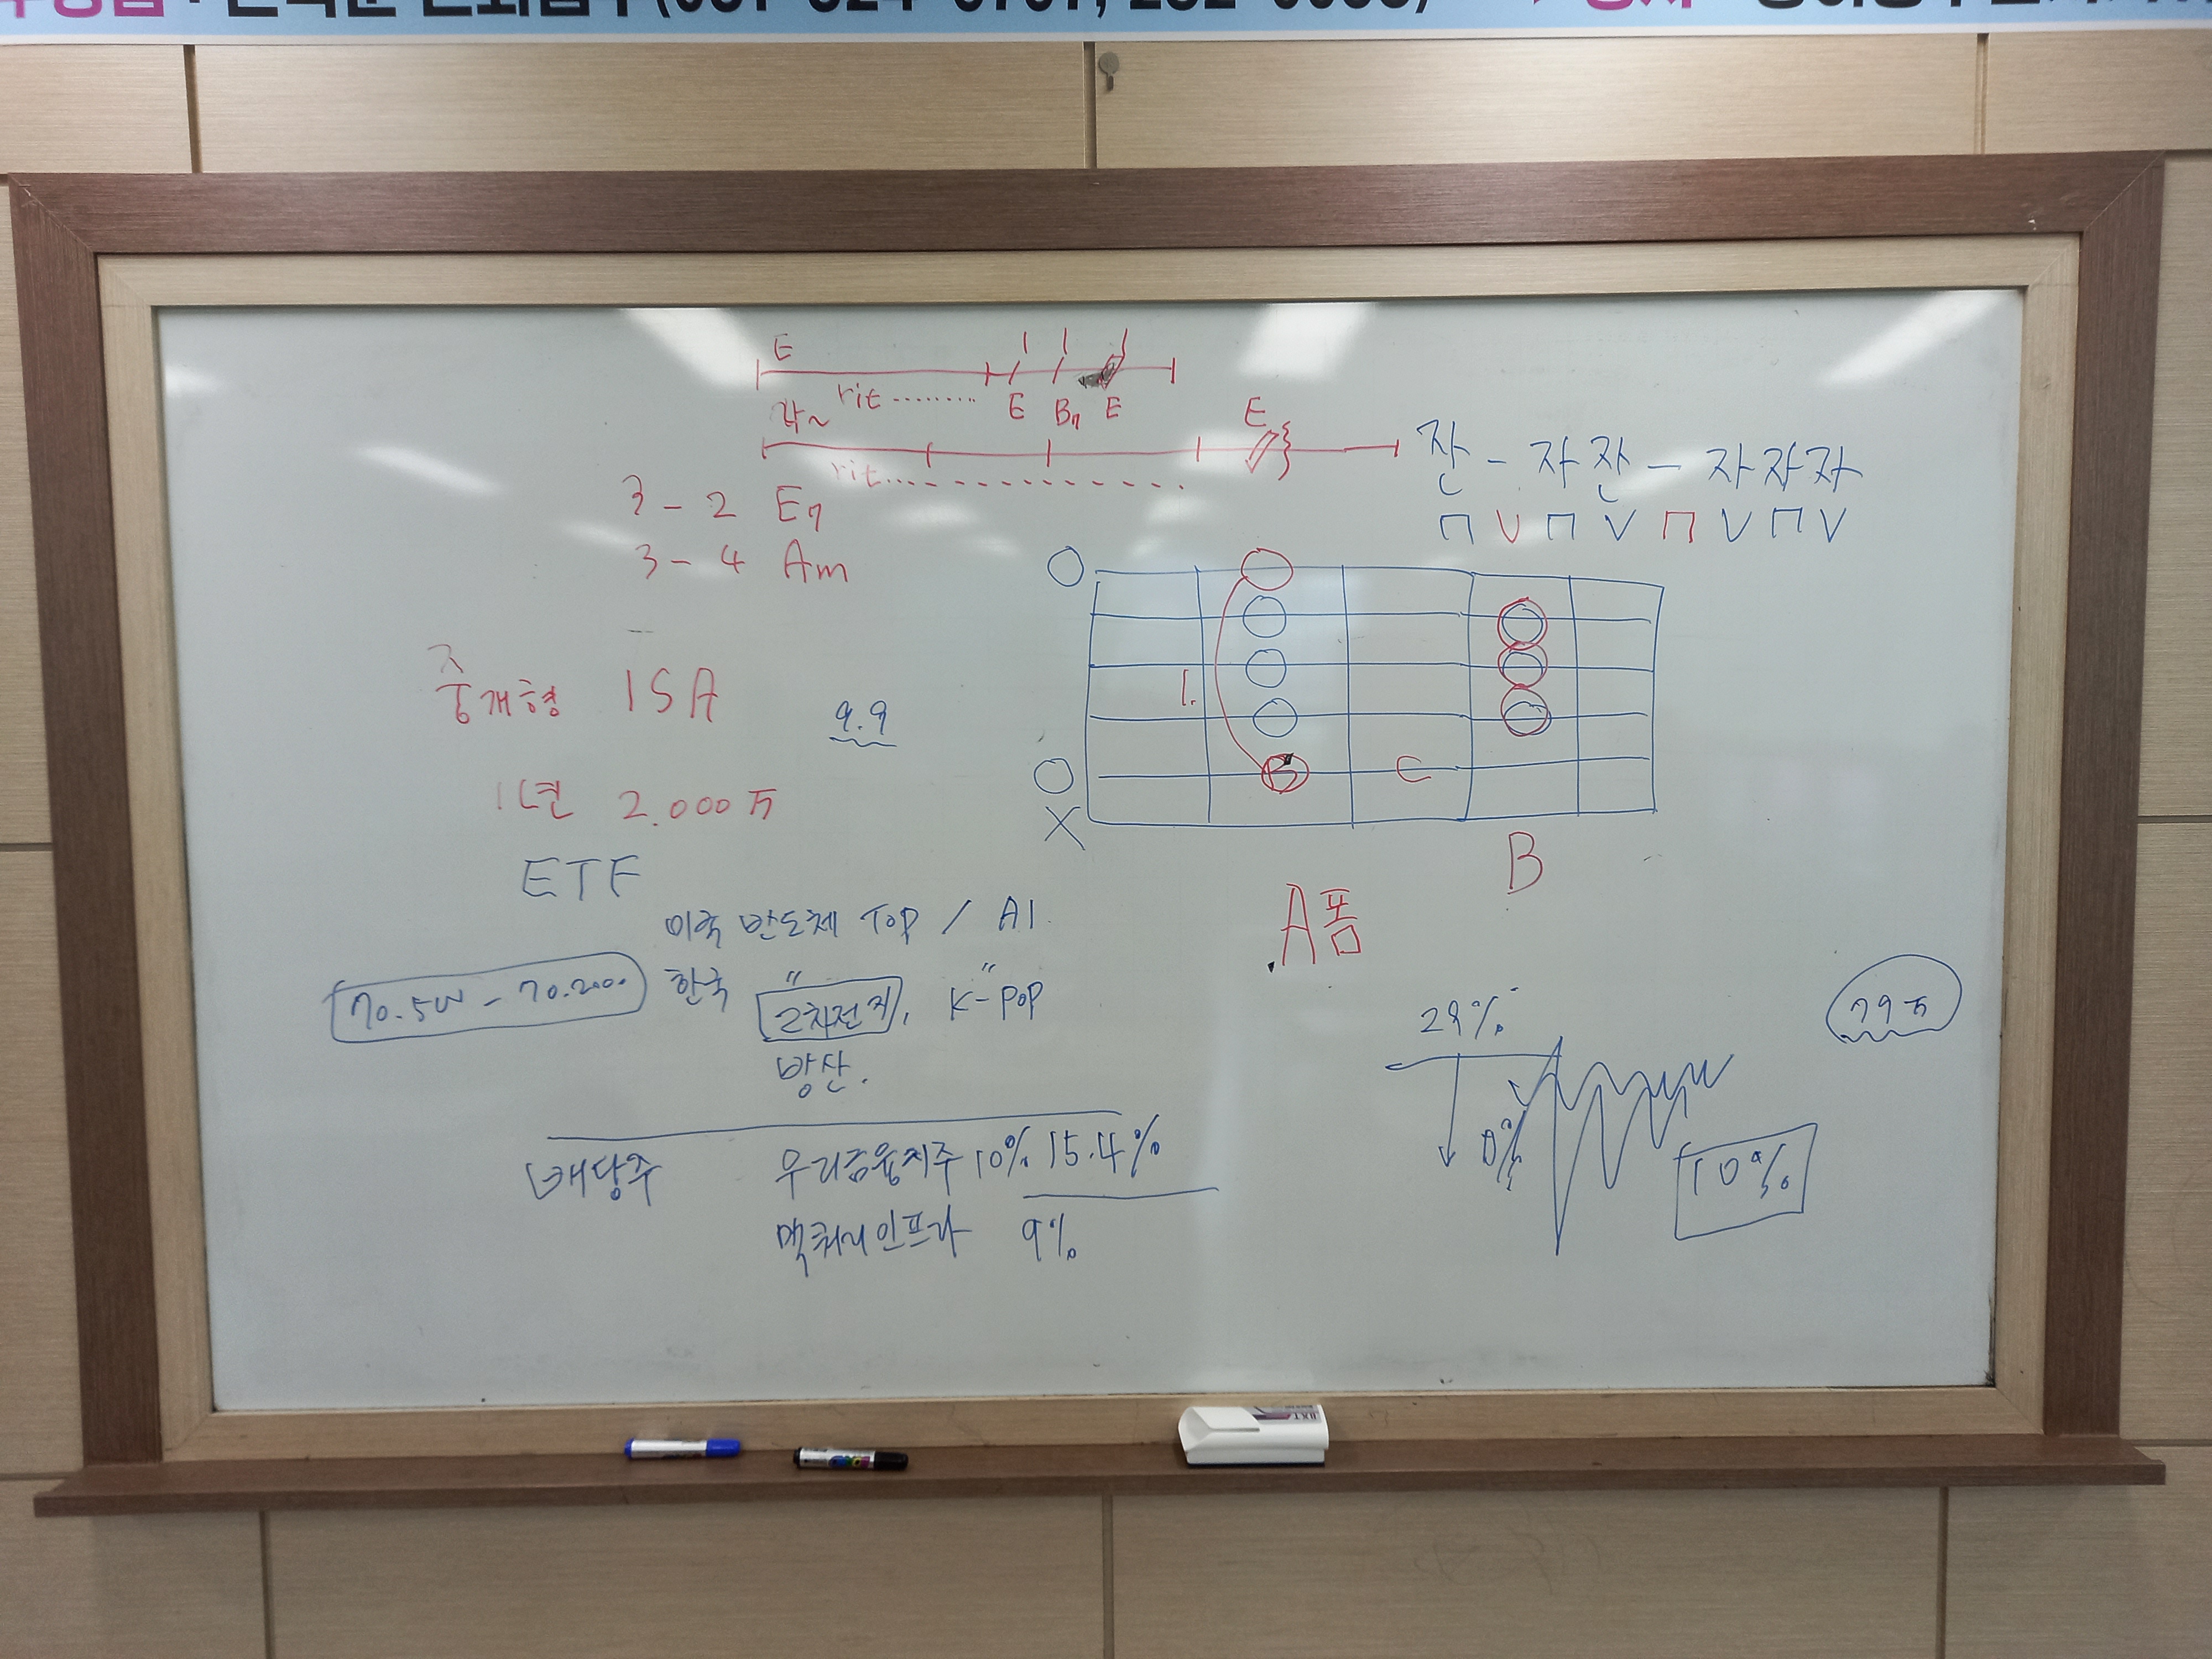 E
rit
E B7 E
E
rit
잔 - 자 잔 - 자 자 자
3 - 2 E7
3 - 4 Am
중개형 ISA
9.9
1년 2.000万
B C
X
B
A폼
ETF
미국 반도체 TOP / AI
한국 " "
2차전지, K-POP
방산.
29%
79万
10%
배당주 우리금융지주 10% 15.4%
맥쿼리인프라 9%